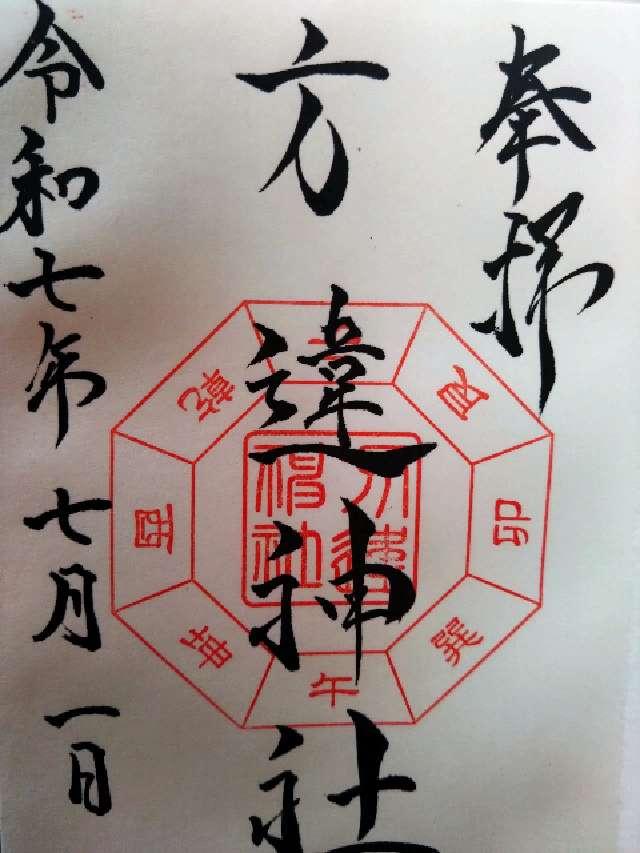 奉拝
方違神社
令和七年七月一日
乾
艮
酉
卯
坤
午
巽
方違
神社